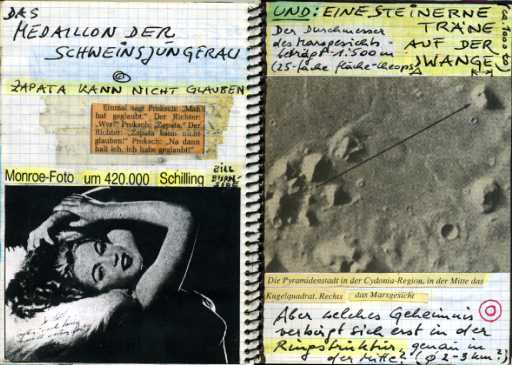 DAS
MEDAILLON DER
SCHWEINSJUNGFRAU
©
ZAPATA KANN NICHT GLAUBEN
Einmal sagt Proksch: „Mafl
hat geglaubt." Der Richter:
„Wer?" Proksch: „Zapata." Der
Richter: „Zapata kann nicht
glauben!" Proksch: „Na dann
halt ich. Ich habe geglaubt!"
Monroe-Foto um 420.000 Schilling
UND: EINE STEINERNE
TRÄNE
AUF DER
WANGE!
Der Durchmesser
des Marsgesichts
beträgt 1.500 m
(25-fache fläche-Cheops
Die Pyramidenstadt in der Cydonia-Region, in der Mitte das
Kugelquadrat. Rechts das Marxgesicht
Aber welches Geheimnis
verbirgt sich erst in der
Ringstruktur, genau in
der Mitte? (ø 2-3 km?)